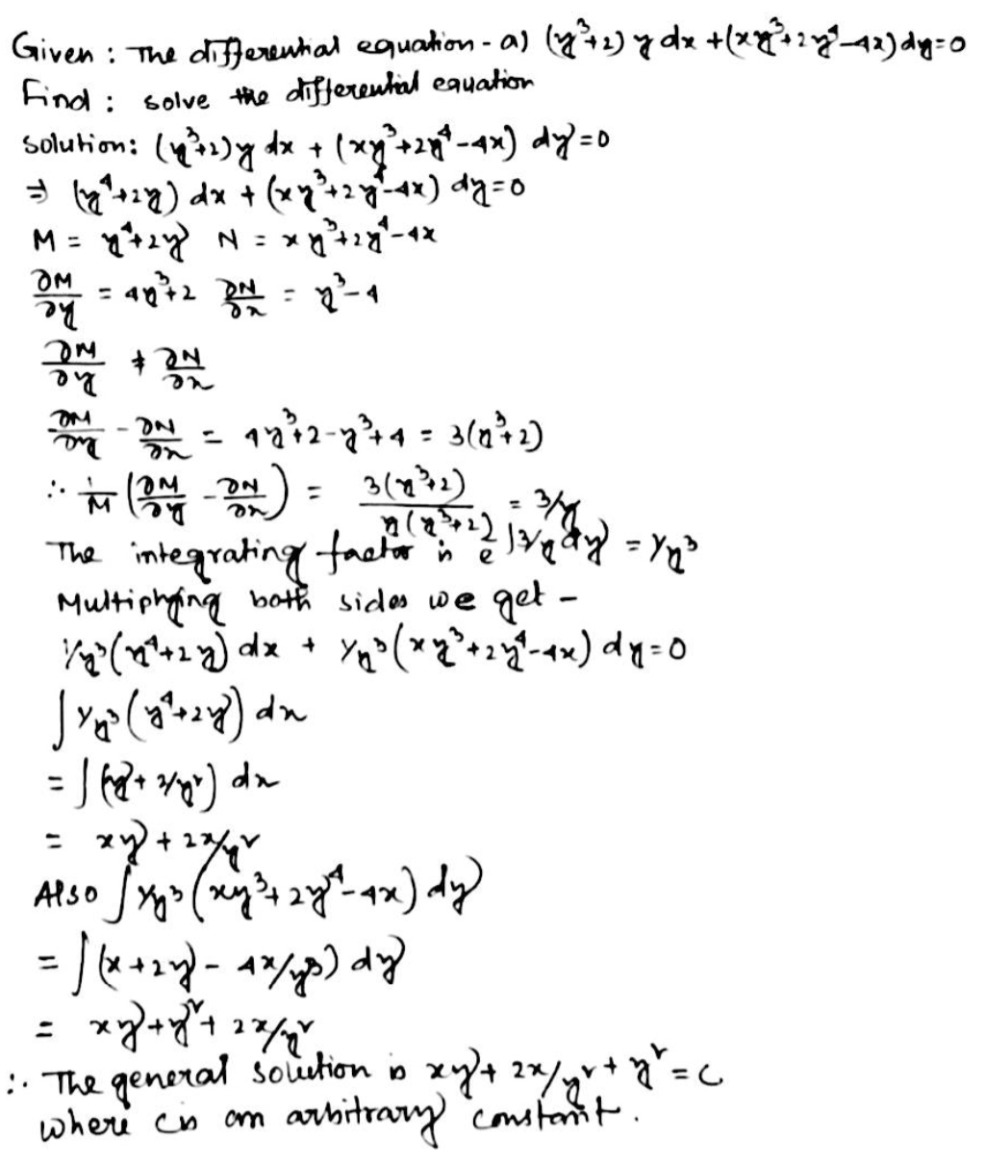 Given : The differential equation - a) (y³+2) y dx + (xy³+2y⁴-4x) dy=0
Find : solve the differential equation
solution: (y³+2)y dx + (xy³+2y⁴-4x) dy=0
⇒ (y⁴+2y) dx + (xy³+2y⁴-4x) dy=0
M = y⁴+2y N = xy³+2y⁴-4x
∂M/∂y = 4y³+2 ∂N/∂x = y³-4
∂M/∂y ≠ ∂N/∂x
∂M/∂y - ∂N/∂x = 4y³+2-y³+4 = 3(y³+2)
∴ 1/M (∂M/∂y - ∂N/∂x) = 3(y³+2)/y(y³+2) = 3/y
The integrating factor is e^∫3/y dy = 1/y³
Multiplying both sides we get -
1/y³(y⁴+2y) dx + 1/y³(xy³+2y⁴-4x) dy=0
∫1/y³(y⁴+2y) dx
= ∫(y+2/y²) dx
= xy + 2x/y²
Also ∫1/y³(xy³+2y⁴-4x) dy
= ∫(x+2y-4x/y³) dy
= xy+y²+2x/y²
∴ The general solution is xy+2x/y²+y²=c
where c is an arbitrary constant.